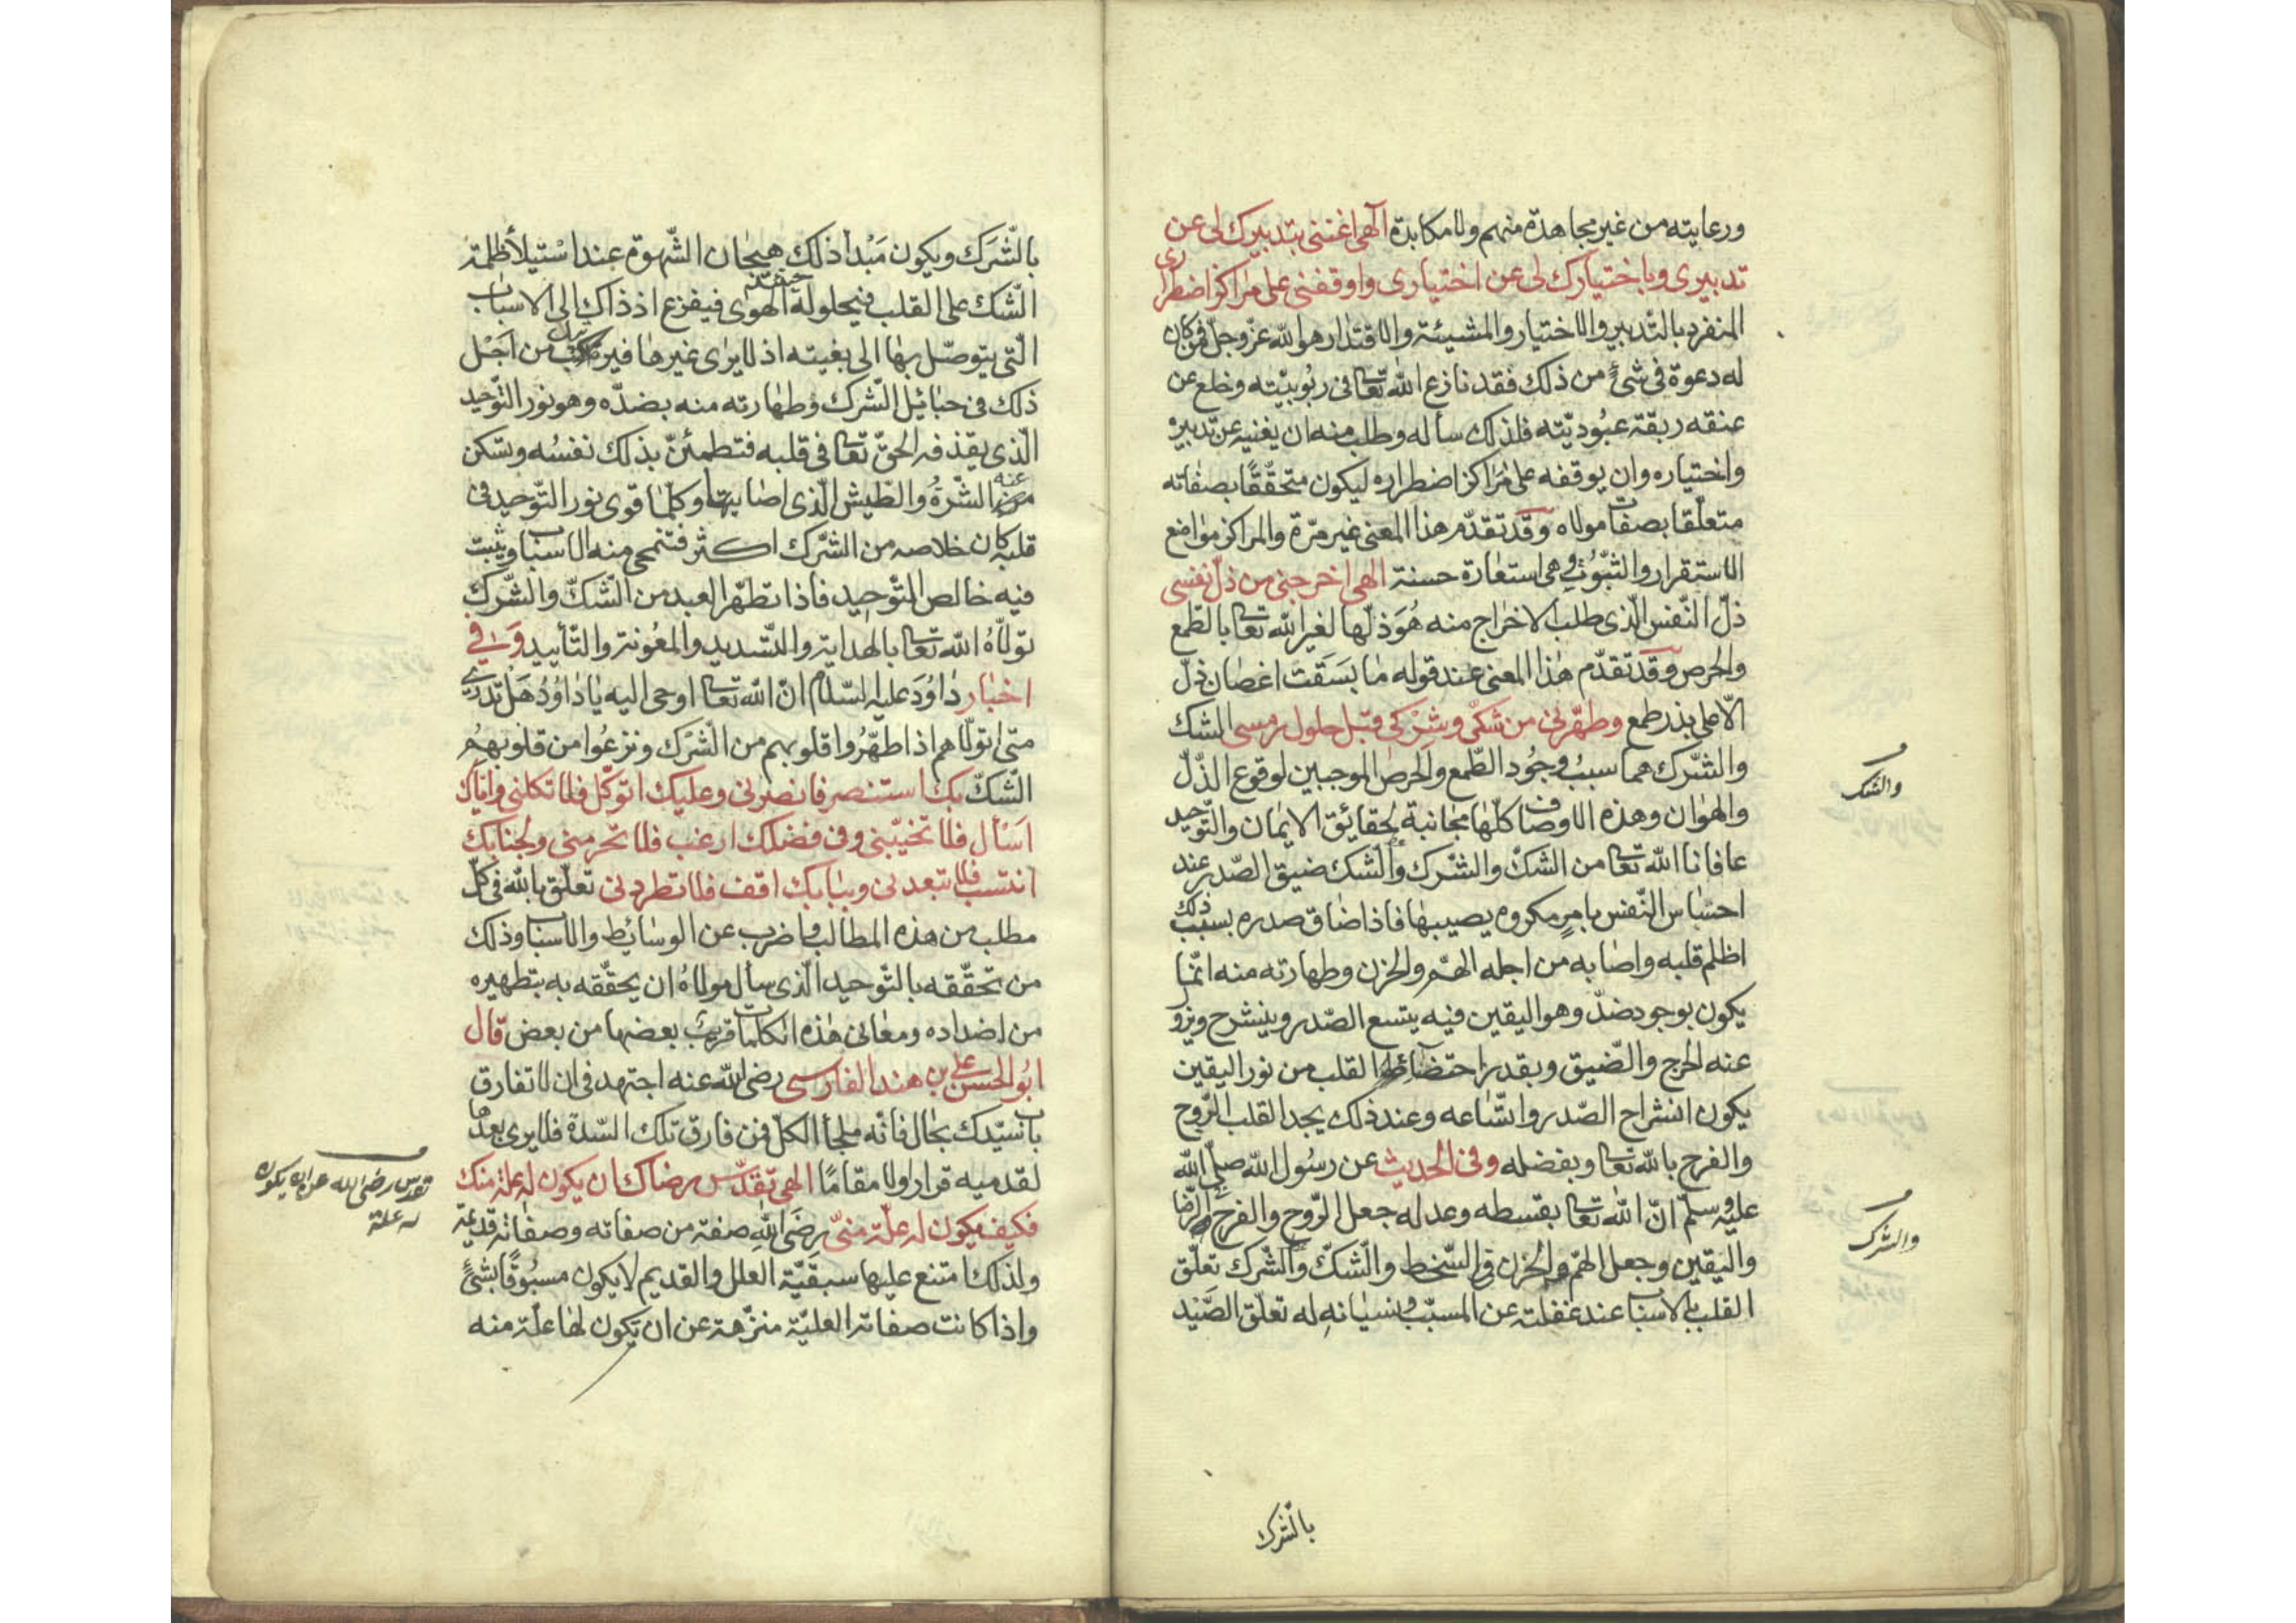 ورعايته من غير مجاهدة منهم ولا مكابدة الهى اغننى بتدبيرك لى عن
تدبيرى وباختيارك لى عن اختيارى واوقفنى على مراكز اضطرارى
المنفرد بالتدبير والاختيار والمشيئة والاقتدار هو الله عز وجل فمن كان
له دعوة فى شئ من ذلك فقد نازع الله تعا فى ربوبيته وخلع عن
عنقه ربقة عبوديته فلذلك سأله وطلب منه ان يغنيه عن تدبيره
واختياره وان يوقفه على مراكز اضطراره ليكون متحققا بصفاته
متعلقا بصفات مولاه وقد تقدم هذا المعنى غير مرة والمراكز مواضع
الاستقرار والثبوت وهى استعارة حسنة الهى اخرجنى من ذل نفسى
ذل النفس الذى طلب الاخراج منه هو ذلها لغير الله تعا بالطمع
والحرص وقد تقدم هذا المعنى عند قوله ما بسقت اغصان ذل
الا على بذر طمع وطهرنى من شكى وشركى قبل حلول رمسى الشك
والشرك هما سبب وجود الطمع والحرص الموجبين لوقوع الذل
والشك
والهوان وهذه الاوصاف كلها مجانبة لحقائق الايمان والتوحيد
عافانا الله تعا من الشك والشرك والشك ضيق الصدر عند
احساس النفس بامر مكروه يصيبها فاذا ضاق صدره بسبب ذلك
اظلم قلبه واصابه من اجله الهم والحزن وطهارته منه انما
يكون بوجود ضد وهو اليقين فيه يتسع الصدر وينشرح ويزول
عنه الحرج والضيق وبقدر احتضاء القلب من نور اليقين
يكون انشراح الصدر واتساعه وعند ذلك يجد القلب الروح
والفرح بالله تعا وبفضله وفى الحديث عن رسول الله صلى الله
عليه وسلم ان الله تعا بقسطه وعدله جعل الروح والفرح فى الرضا
واليقين وجعل الهم والحزن فى السخط والشك والشرك تعلق
والشرك
القلب بالاسباب عند غفلته عن المسبب ونسيانه له تعلق الصيد
بالشرك
بالشرك ويكون مبدأ ذلك هيجان الشهوة عند استيلأ ظلمة
الشك على القلب فيحلو له حينئذ الهوى فيفزع اذ ذاك الى الاسباب
التى يتوصل بها الى بغيته اذ لا يرى غيرها فيرتبك من اجل
ذلك فى حبائل الشرك وطهارته منه بضده وهو نور التوحيد
الذى يقذفه الحق تعا فى قلبه فتطمئن بذلك نفسه وتسكن
عنه الشرة والطيش الذى اصابها وكلما قوى نور التوحيد فى
قلبه كان خلاصه من الشرك اكثر فتنمحى منه الاسباب ويثبت
فيه خالص التوحيد فاذا تطهر العبد من الشك والشرك
تولاه الله تعا بالهداية والتسديد والمعونة والتأييد وفي
اخبار داود عليه السلام ان الله تعا اوحى اليه يا داود هل تدرى
متى اتولاهم اذا طهروا قلوبهم من الشرك ونزعوا من قلوبهم
الشك بك استنصر فانصرنى وعليك اتوكل فلا تكلنى واياك
اسأل فلا تخيبنى وفى فضلك ارغب فلا تحرمنى ولجنابك
انتسب فلا تبعدنى وببابك اقف فلا تطردنى تعلق بالله فى كل
مطلب من هذه المطالب واضرب عن الوسائط والاسباب وذلك
من تحققه بالتوحيد الذى سأل مولاه ان يحققه به بتطهيره
من اضداده ومعانى هذه الكلمات قريب بعضها من بعض قال
ابو الحسن على بن هند الفارسى رضى الله عنه اجتهد فى ان لا تفارق
باب سيدك بحال فانه ملجأ الكل فمن فارق تلك السدة فلا يرى بعدها
لقدميه قرارا ولا مقاما الهى تقدس رضاك ان يكون له علة منك
تقدس رضى الله عن ان يكون
له علة
فكيف يكون له علة منى رضى الله صفة من صفاته وصفاته قديمة
ولذلك امتنع عليها سبقية العلل والقديم لا يكون مسبوقا بشئ
واذا كانت صفاته العلية منزهة عن ان يكون لها علة منه